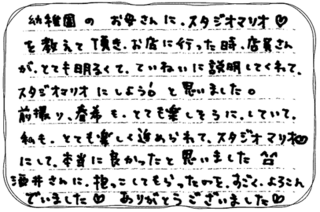 幼稚園の お母さんに、スタジオマリオ♡
を教えて頂き、お店に行った時、店員さん
が、とても明るくて、ていねいに説明してくれて、
スタジオマリオにしよう!と思いました。
前撮り、春華も、とても楽しそうに、していて、
私も、とても楽しく進められて、スタジオマリオ
にして、本当に良かったと思いました
酒井さんに、抱っこしてもらったのを、すごく、よろこん
でいました♡ ありがとうございました♡